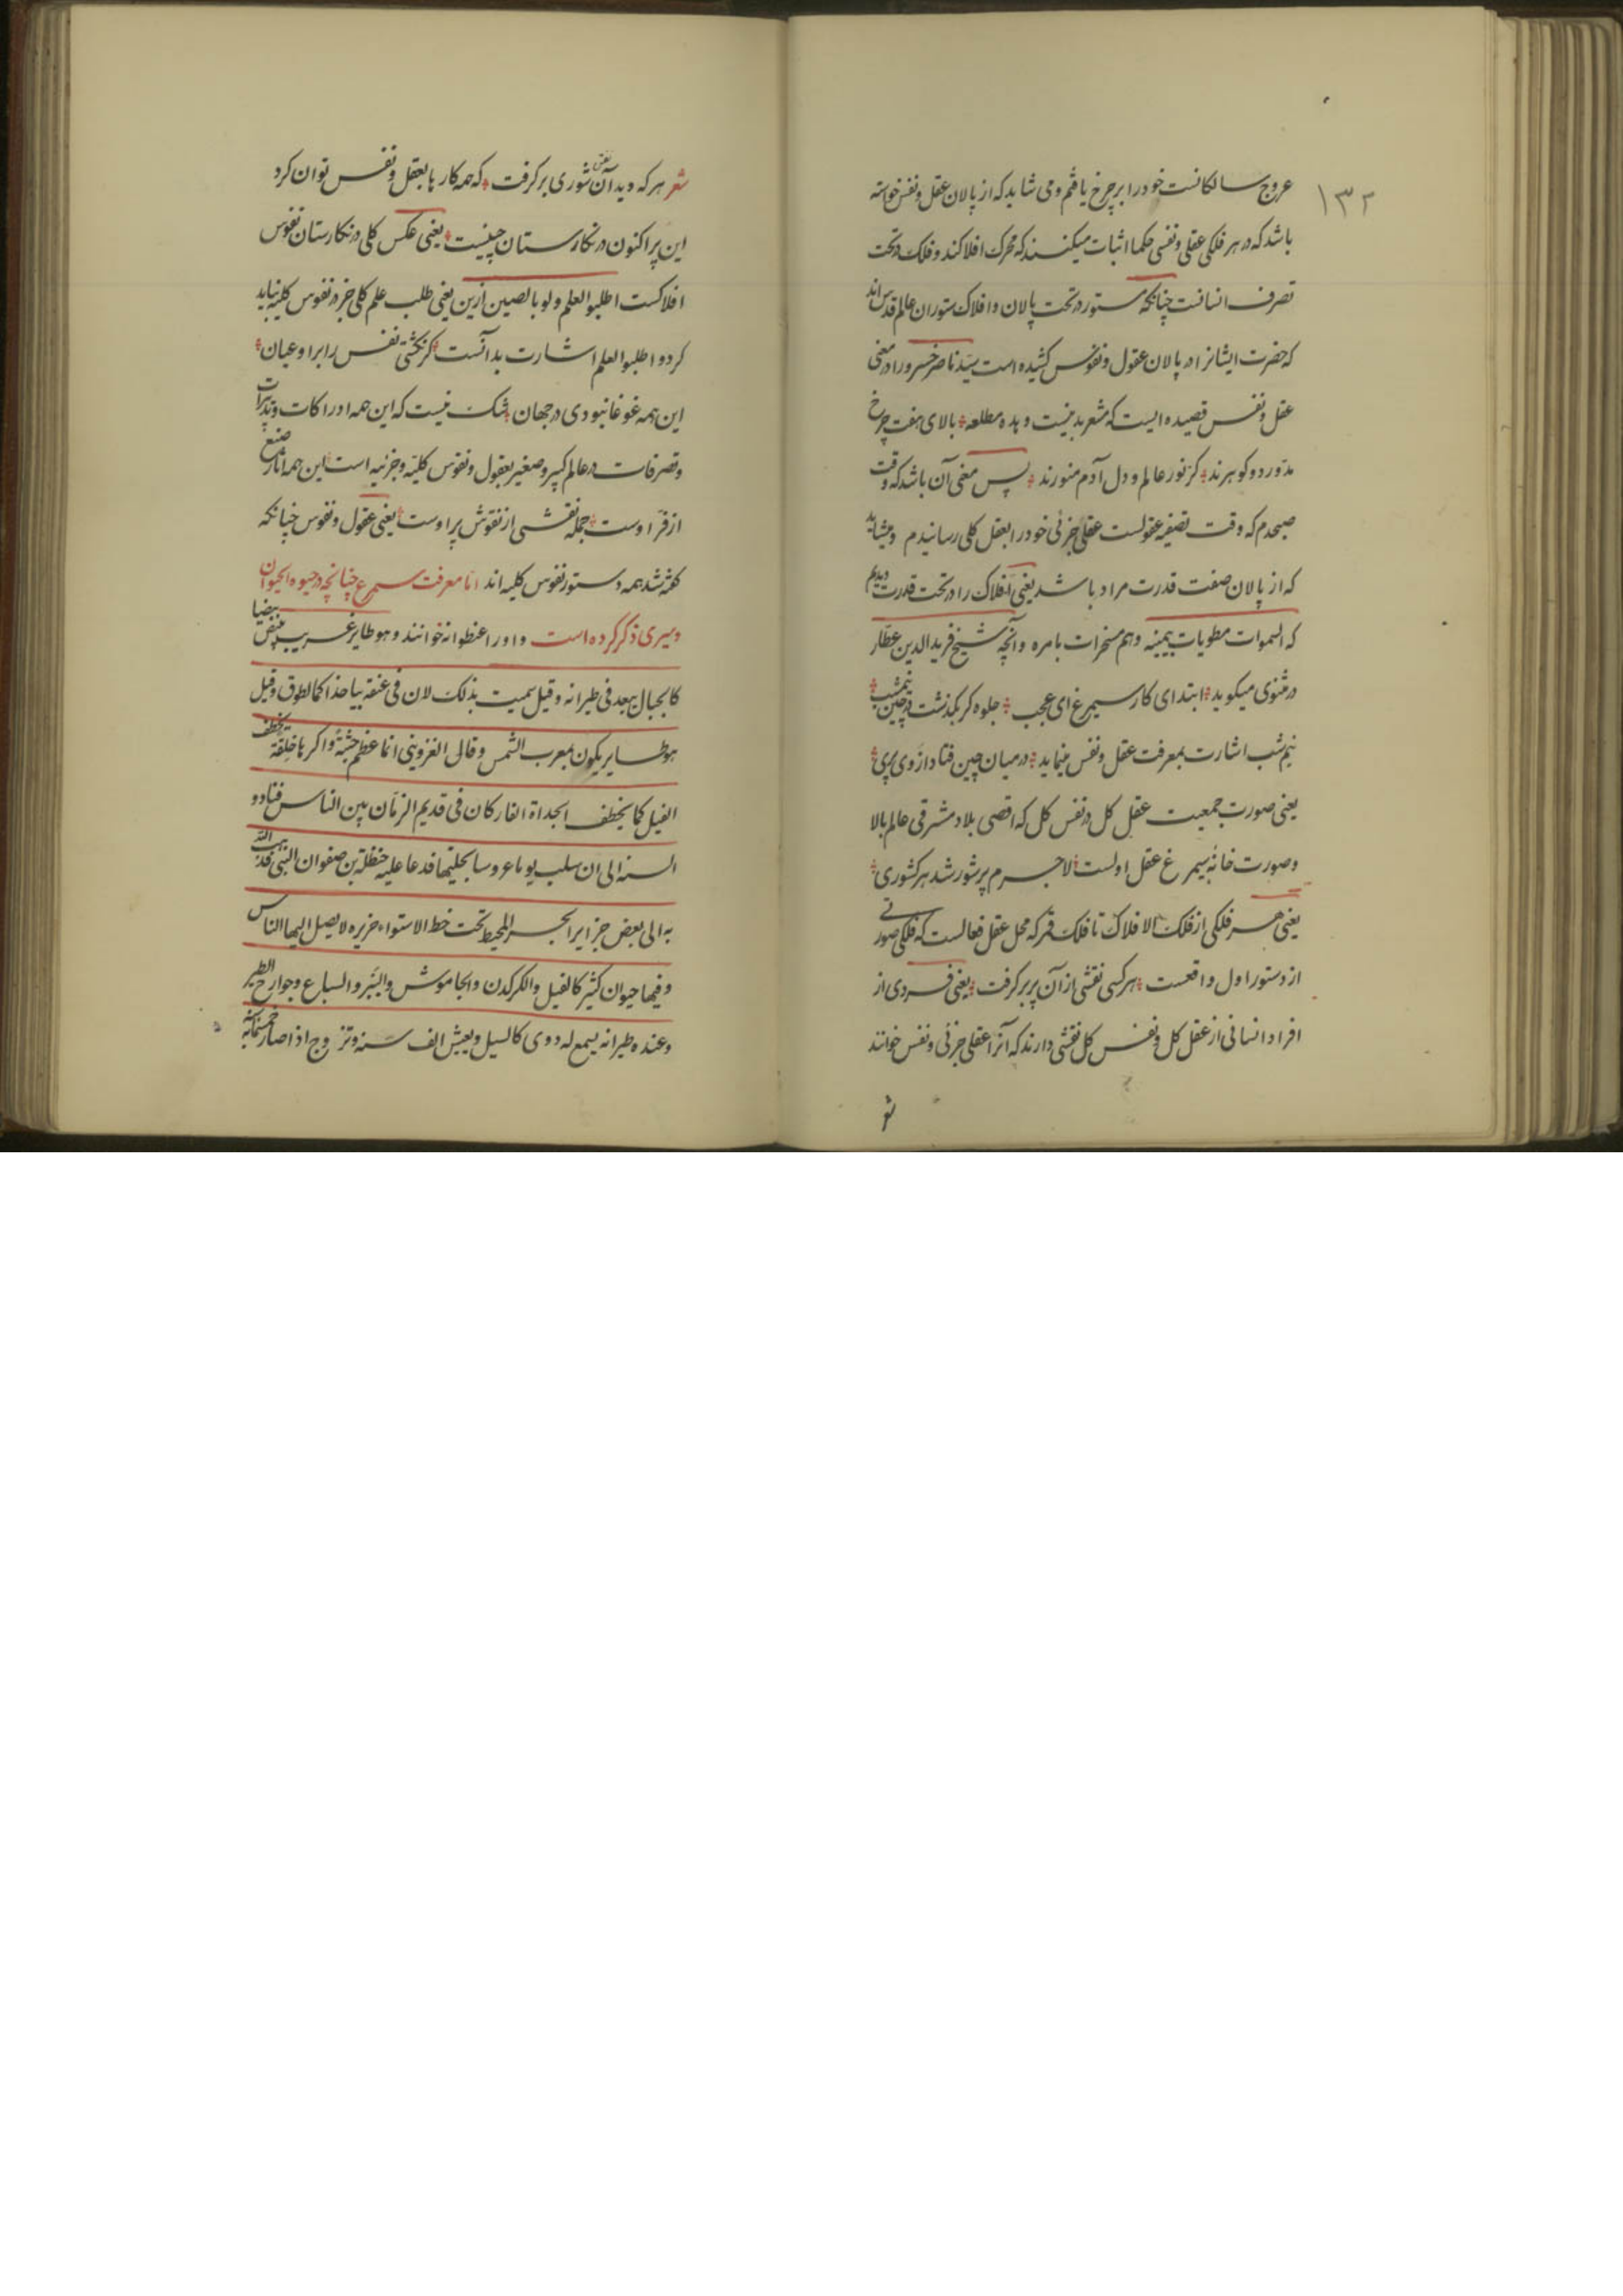 ۱۳۲
عروج سالکانست خود را بر چرخ یافتم و می شاید که از پالان عقل و نفس خواسته
باشد که در هر فلکی عقلی و نفسی حکما اثبات میکنند که محرک افلاکند و فلک در تحت
تصرف انسانست چنانکه ستور در تحت پالان و افلاک ستوران عالم قدس اند
که حضرت ایشانرا در پالان عقول و نفوس کشیده است سید ناصر خسرو را در معنی
عقل و نفس قصیده ایست که مشعر بدینست و بده مطلعه بالای هفت چرخ
مدور دو کوهرند کز نور عالم و دل آدم منورند پس معنی آن باشد که وقت
صبحدم که وقت تصفیه عقولست عقل جزئی خود را بعقل کلی رسانیدم و میشاید
که از پالان صفت قدرت مراد باشد یعنی افلاک را در تحت قدرت دیدم
که السموات مطویات بیمینه وهم مسخرات بامره و آنچه شیخ فریدالدین عطار
در مثنوی میکوید ابتدای کار سیمرغ ای عجب جلوه کر بکذشت در چین نیمشب
نیم شب اشارت بمعرفت عقل و نفس مینماید در میان چین فتاد از وی پری
یعنی صورت جمعیت عقل کل در نفس کل که اقصی بلاد مشرقی عالم بالا
و صورت خانه سیمرغ عقل اولست لاجرم پرشور شد هر کشوری
یعنی هر فلکی از فلک الافلاک تا فلک قمر که محل عقل فعالست که فلکی صورتی
از دستور اول واقعست هر کسی نقشی از آن پر بر کرفت یعنی فردی از
افراد انسانی از عقل کل و نفس کل نقشی دارند که آنرا عقلی جزئی و نفس خوانند
شعر هر که دید آن نقش شوری بر کرفت که همه کار با بعقل و نفس توان کرد
این پر اکنون در نکارستان چینست یعنی عکس کلی در نکارستان نفوس
افلاکست اطلبوا العلم ولو بالصین ازین یعنی طلب علم کلی جز در نفوس کلیه نباید
کرد و اطلبوا العلم اشارت بدانست کر نکشتی نفس را بر او عیان
این همه غوغا نبودی در جهان شک نیست که این همه ادراکات و تدبیرات
و تصرفات در عالم کبیر و صغیر بعقول و نفوس کلیه و جزئیه است این همه آثار صنع
از فر اوست جمله نقشی از نقوش پر اوست یعنی عقول و نفوس چنانکه
کفته شد همه دستور نفوس کلیه اند اما معرفت سیمرغ چنانچه در حیوه الحیوان
دمیری ذکر کرده است و او را عنظوانه خوانند وهو طایر غریب تبیض بیضا
کالجبال یبعد فی طیرانه وقیل سمیت بذلک لان فی عنقه بیاضا کالطوق وقیل
هو طایر یکون بمغرب الشمس وقال القزوینی انها عظم جثة واکبرها خلقة تخطف
الفیل کما یخطف الحداة الفار کان فی قدیم الزمان بین الناس فتاذوا
السنه الی ان سلب یوما عروسا بحلیتها فدعا علیه حنظلة بن صفوان النبی فذهب الله
به الی بعض جزایر البحر المحیط تحت خط الاستواء جزیره لا یصل الیها الناس
وفیها حیوان کثیر کالفیل والکرکدن والجاموش والببر والسباع وجوارح الطیر
وعنده طیرانه یسمع له دوی کالسیل ویعیش الف سنه وتزوج اذا صار خمسمائة